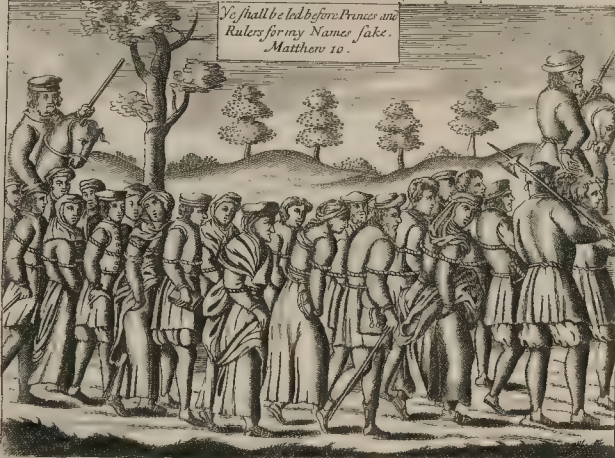 Ye ſhall be led before Princes and
Rulers for my Names ſake.
Matthew 10.